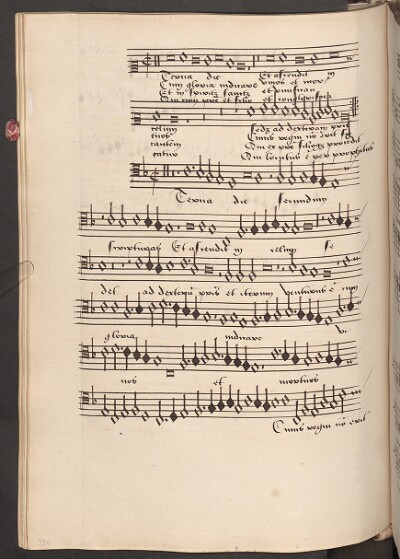 Tercia die Et ascendit in
Cum gloria iudicare vivos et mor
Et in spiritum sanctum et vivifican
Qui cum patre et filio et conglorificat
celum Sedet ad dexteram patris
tuos Cuius regni non erit fi
tantem Qui ex patre filioque procedit
ratur Qui locutus est per prophetas
Tercia die secundum
scripturas Et ascendit in celum se
det ad dexteram patris et iterum venturus est cum
gloria iudicare vi
vos et mortuos
Cuius regni non erit